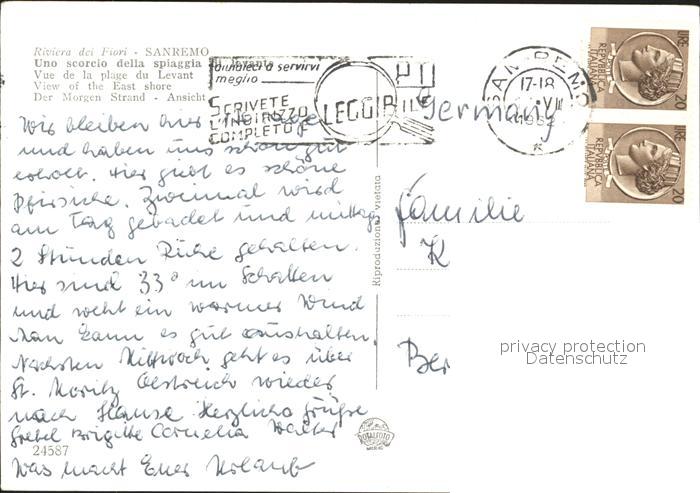 Riviera dei Fiori - SANREMO
Uno scorcio della spiaggia di levante
Vue de la plage du Levant
View of the East shore
Der Morgen Strand - Ansicht
aiutateci a servirvi
meglio
SCRIVETE
L'INDIRIZZO
COMPLETO E
LEGGIBILE
SANREMO
17-18
LIRE 20
REPVBBLICA ITALIANA
LIRE 20
REPVBBLICA ITALIANA
Germany
Wir bleiben hier Tage
und haben uns schon gut
erholt. Hier gibt es schöne
Pfirsiche. Zweimal wird
am Tag gebadet und mittags
2 Stunden Ruhe gehalten.
Hier sind 33° im Schatten
und weht ein warmer Wind
Man kann es gut aushalten.
Nächsten Mittwoch geht es über
St. Moritz Östreich wieder
nach Hause Herzliche Grüße
Gretel Brigitte Cornelia Walter
Was macht Euer Urlaub
24587
Riproduzione vietata
Familie
K
Ber
TOTALFOTO
privacy protection
Datenschutz